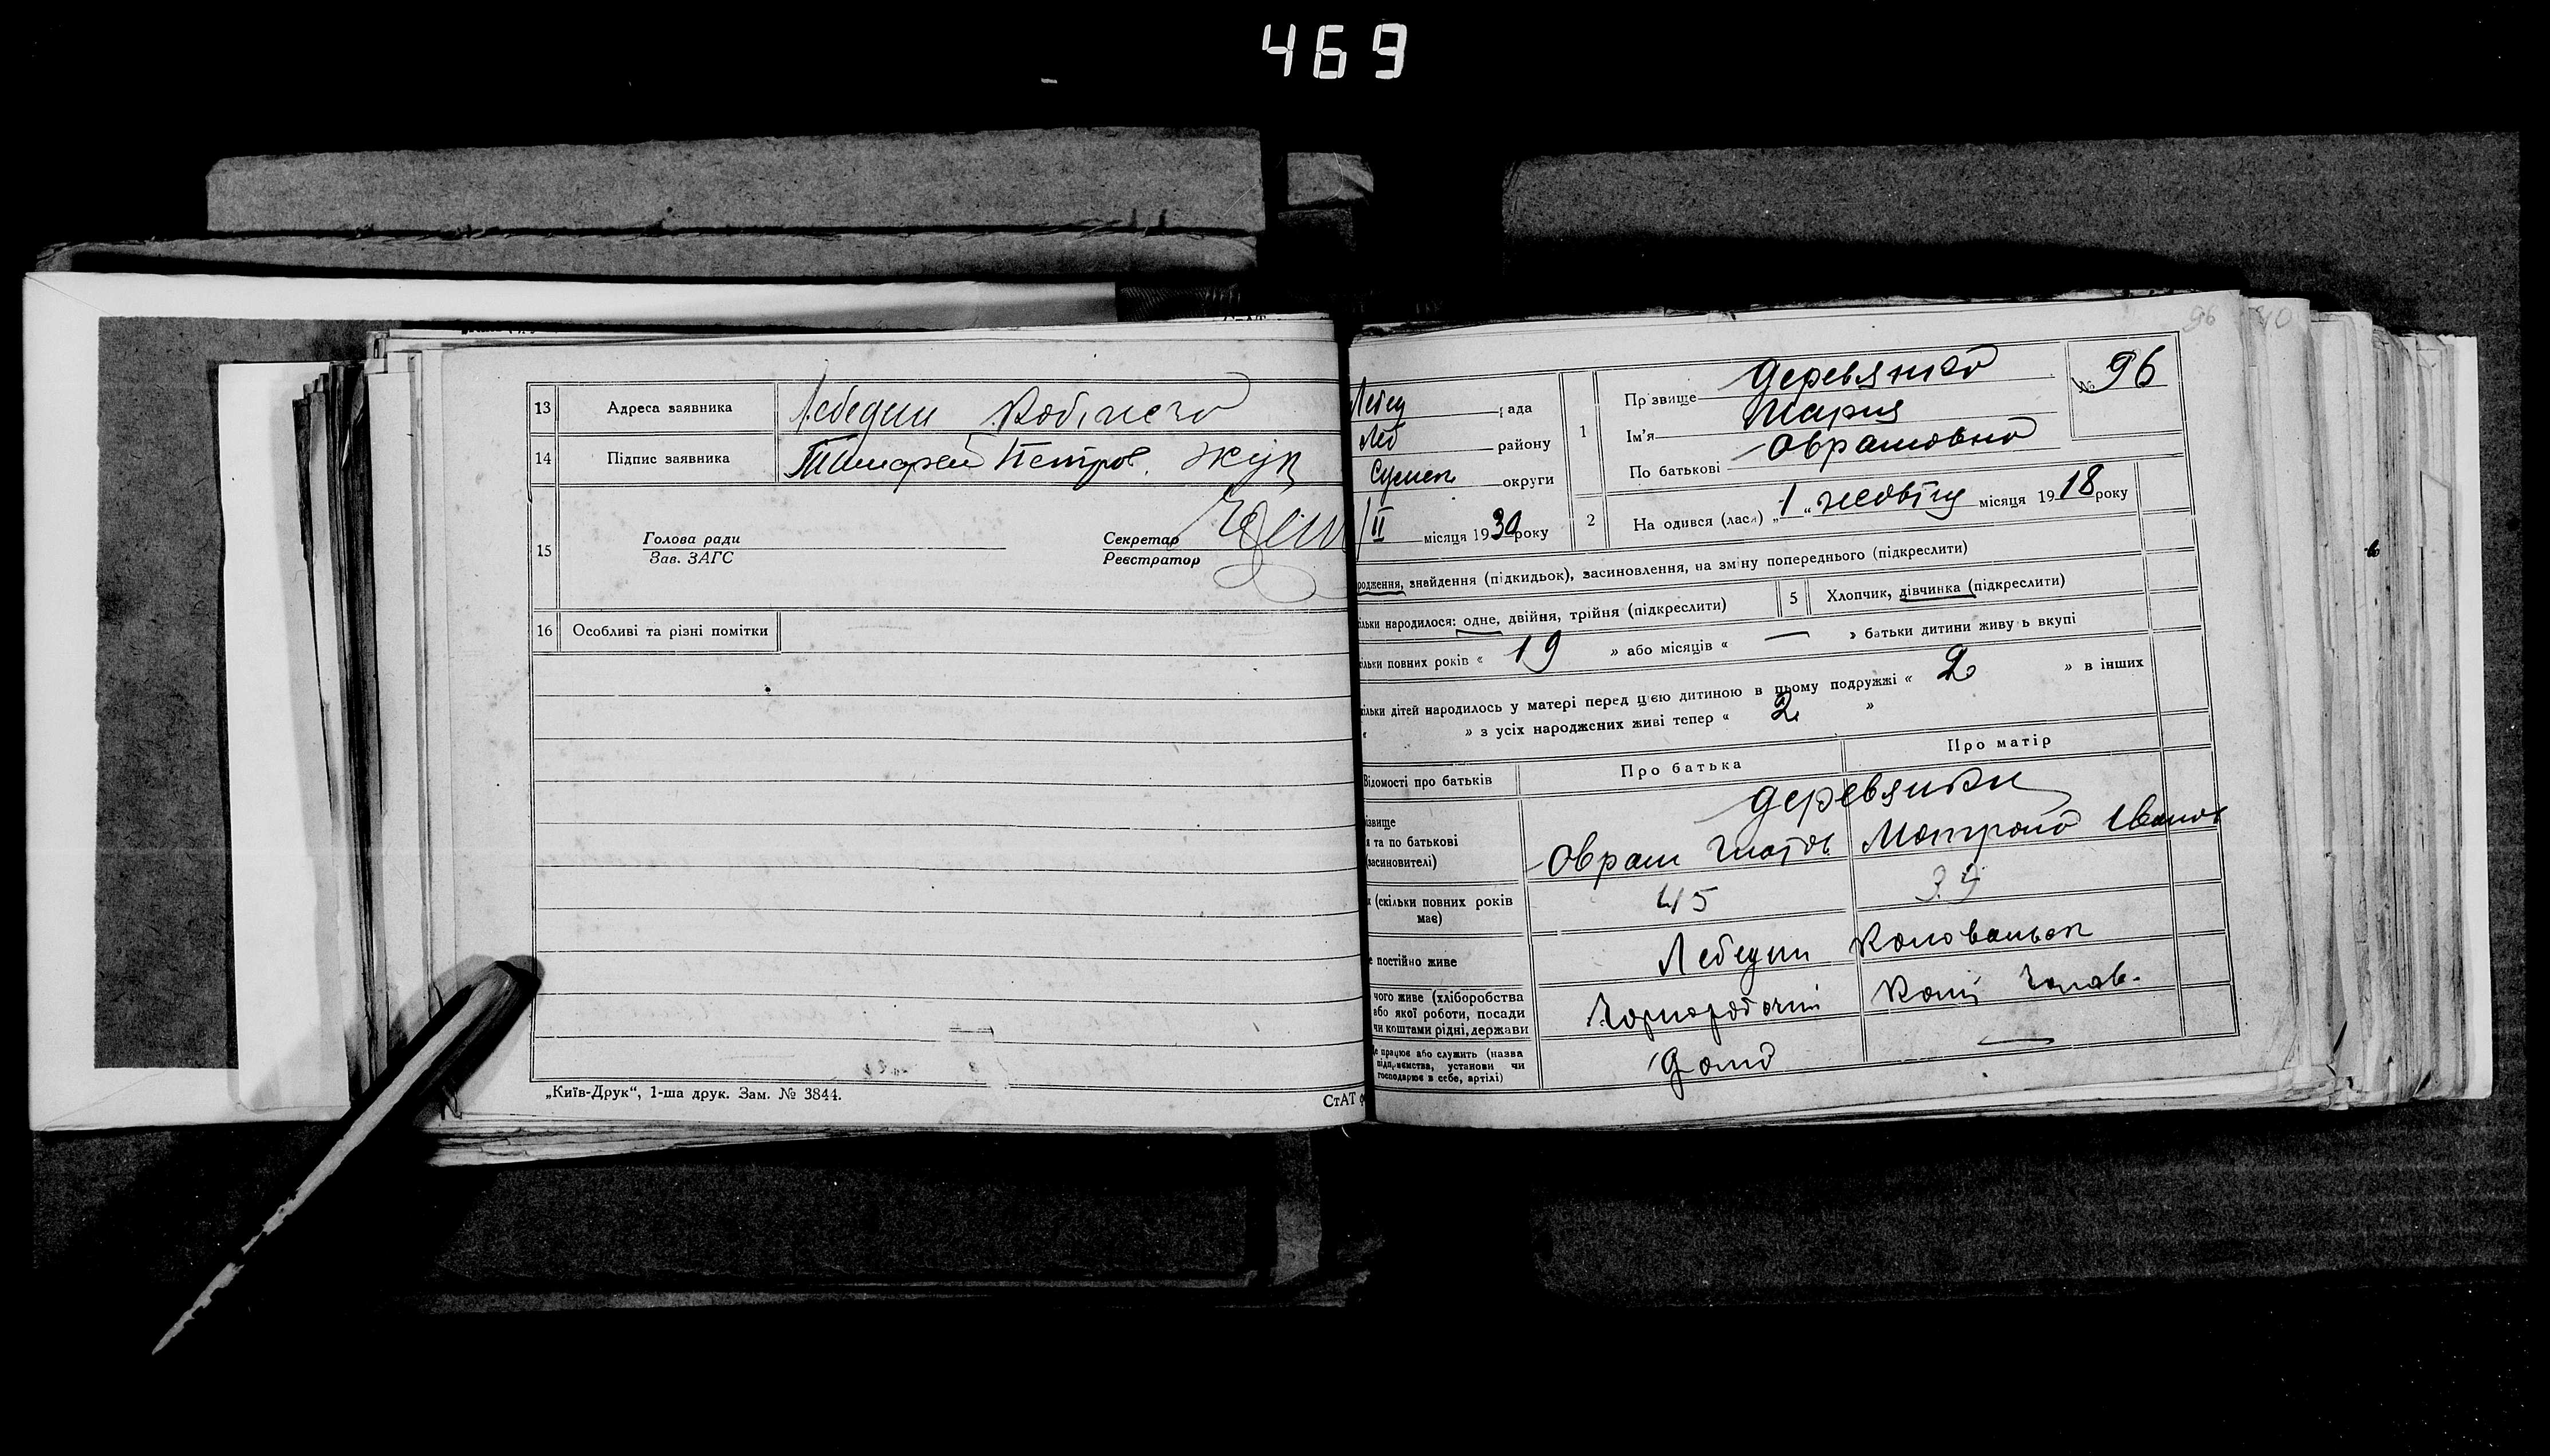 469
13 Адреса заявника Лебедин
14 Підпис заявника Тимофей Петров. Жук
15 Голова ради
Зав. ЗАГС
Секретар
Реєстратор
16 Особливі та різні помітки
„Київ-Друк“, 1-ша друк. Зам. № 3844.
СтАТ
96
40
Лебед рада
Леб району
Сумськ округи
II місяця 1930 року
1 Прізвище Деревянко
Ім'я Мария
По батькові Оврамовно
№ 96
2 На одився (лася) „1“ жовтня місяця 1918 року
родження, знайдення (підкидьок), засиновлення, на зміну попереднього (підкреслити)
ільки народилося: одне, двійня, трійня (підкреслити)
5 Хлопчик, дівчинка (підкреслити)
ільки повних років « 19 » або місяців « — » батьки дитини живуть вкупі
ільки дітей народилось у матері перед цією дитиною в цьому подружжі « 2 » в інших
« » з усіх народжених живі тепер « 2 »
Відомості про батьків Про батька Про матір
ізвище
я та по батькові
(засиновителі)
Деревянки
Оврам Матрона Іванов
к (скільки повних років
має)
45 39
е постійно живе Лебедин
чого живе (хліборобства
або якої роботи, посади
чи коштами рідні, держави
Чорноробочий
Де працює або служить (назва
підприємства, установи чи
господарює в себе, артілі)
Дома —